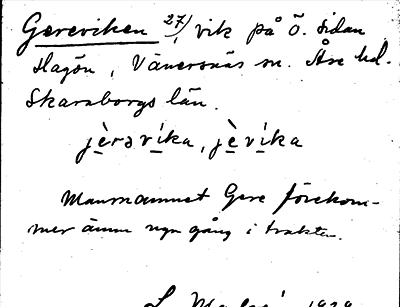 Gereviken 27/, vik på Ö. sidan
Hagön, Vänersnäs sn. Åse hd.
Skaraborgs län.
jèrəvíka, jèvíka
Mansnamnet Gere förekom-
mer ännu ngn gång i trakten.
1929